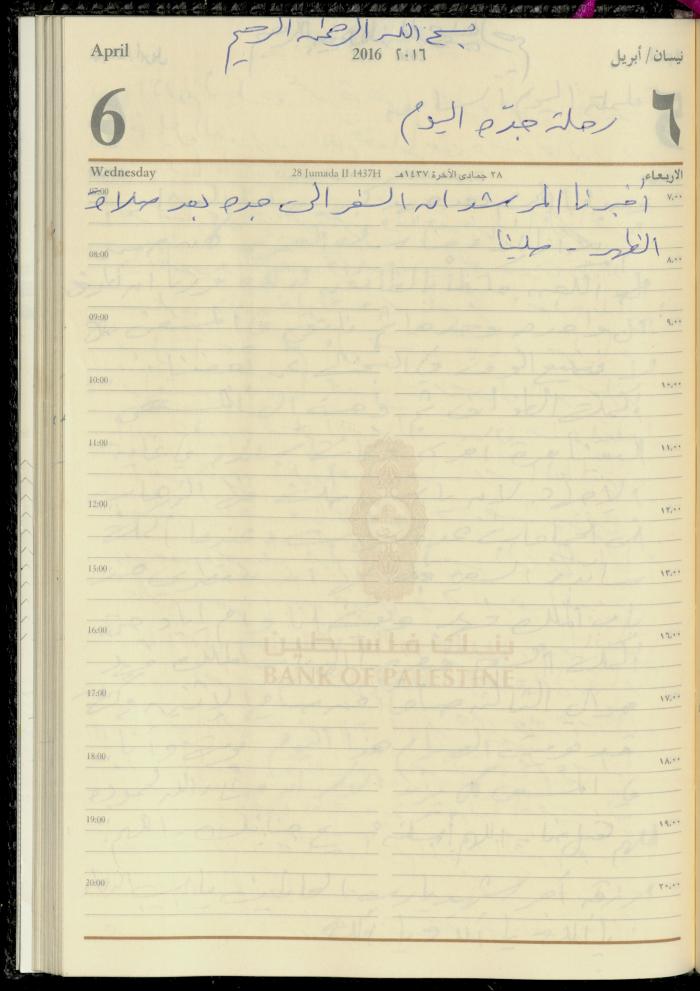 بسم الله الرحمن الرحيم
April 2016 ٢٠١٦ نيسان/أبريل
6 ٦
رحلة جدّه اليوم
Wednesday 28 Jumada II 1437H ٢٨ جمادى الآخرة ١٤٣٧هـ الاربعاء
07:00 ٧,٠٠
أخبرنا المرشد ان السفر الى جده بعد صلاة
الظهر - صلينا
08:00 ٨,٠٠
09:00 ٩,٠٠
10:00 ١٠,٠٠
11:00 ١١,٠٠
12:00 ١٢,٠٠
15:00 ١٣,٠٠
16:00 ١٦,٠٠
بنك فلسطين
BANK OF PALESTINE
17:00 ١٧,٠٠
18:00 ١٨,٠٠
19:00 ١٩,٠٠
20:00 ٢٠,٠٠